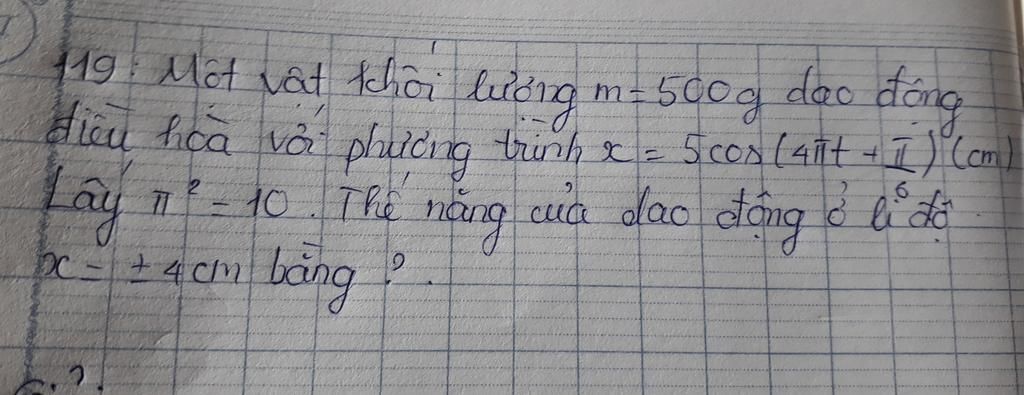 119: Một vật khối lượng m = 500g dao động
điều hoà với phương trình x = 5cos(4πt + π/6)(cm)
Lấy π² = 10. Thế năng của dao động ở li độ
x = ±4cm bằng?.
?.